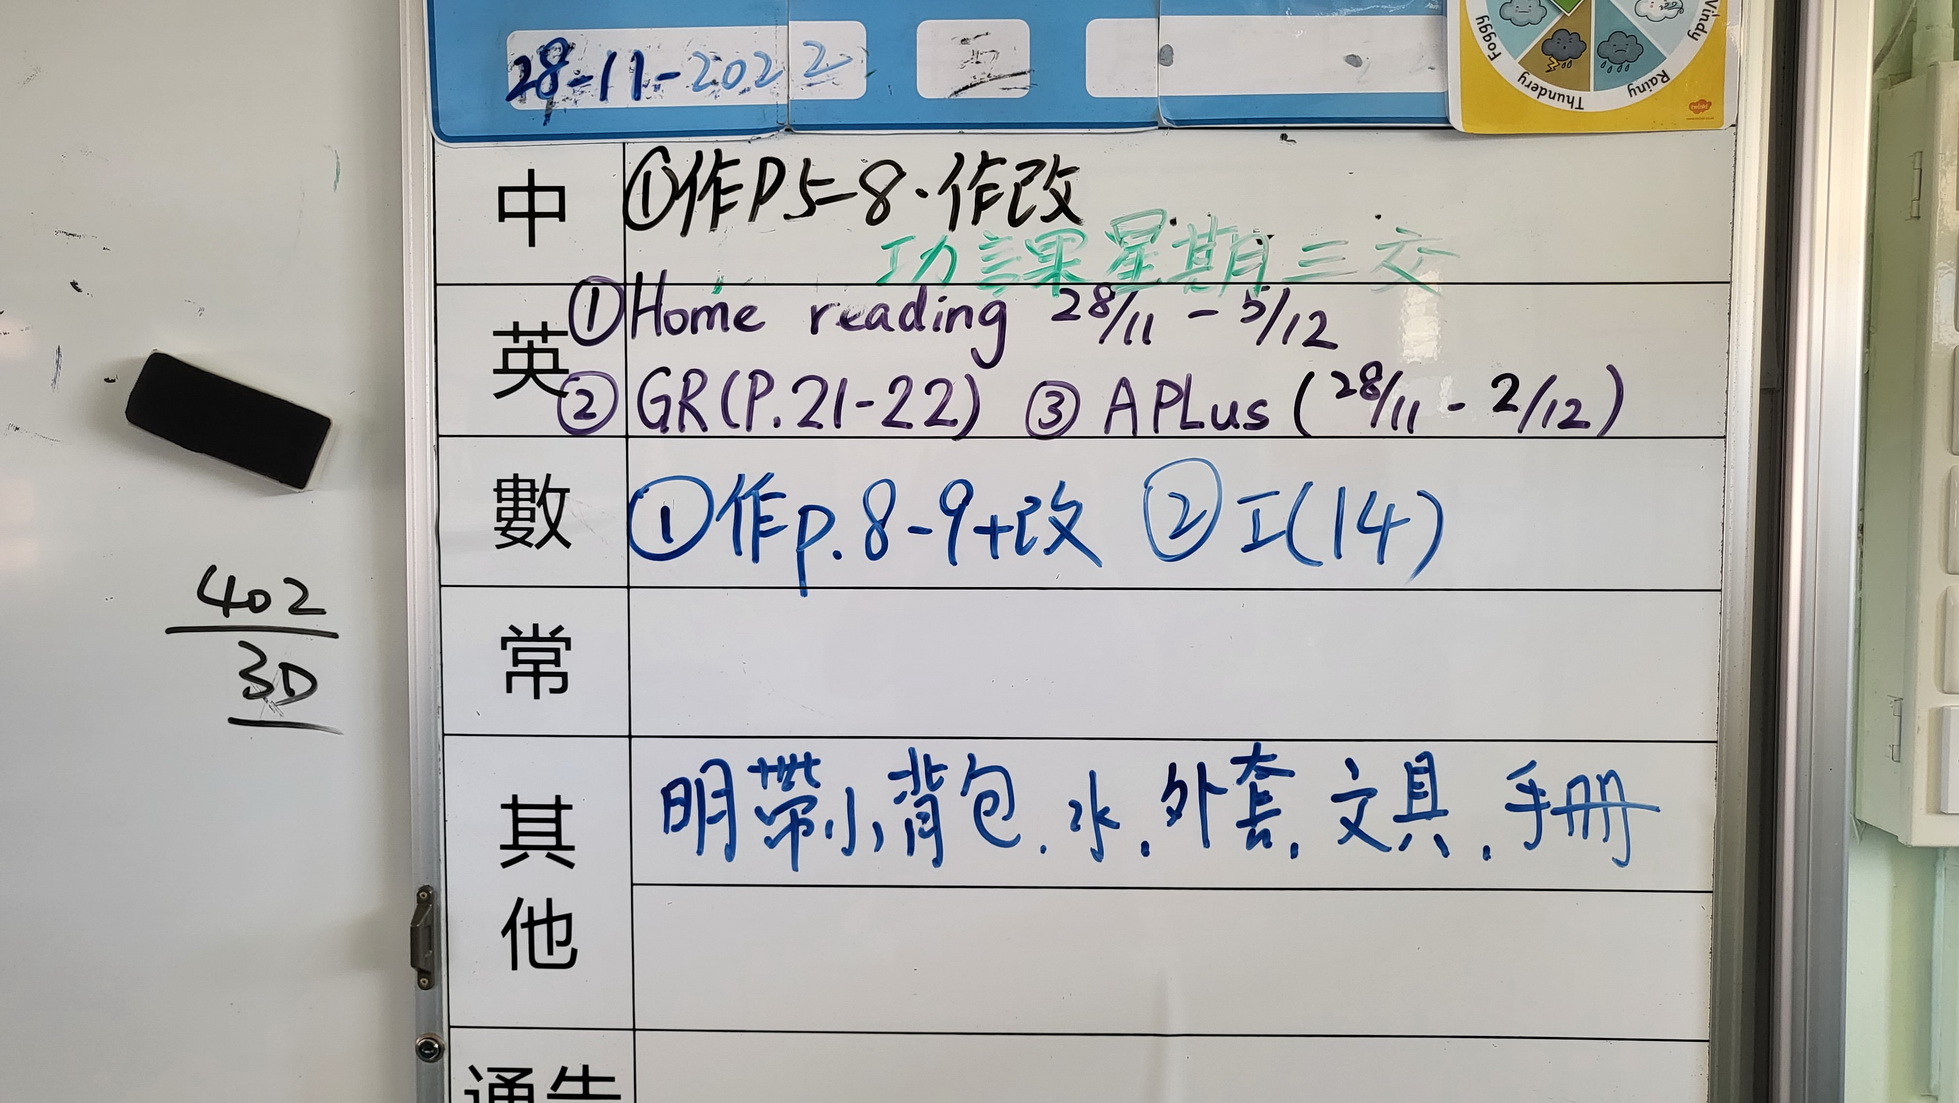 28-11-2022
Foggy
Thundery
Rainy
Windy
中
①作P5-8.作改
功課星期三交
英
①Home reading 28/11 - 5/12
②GR(P.21-22) ③APLus (28/11 - 2/12)
數
①作p.8-9+改 ②工(14)
常
402
3D
其他
明帶小背包.水.外套.文具.手冊
通告